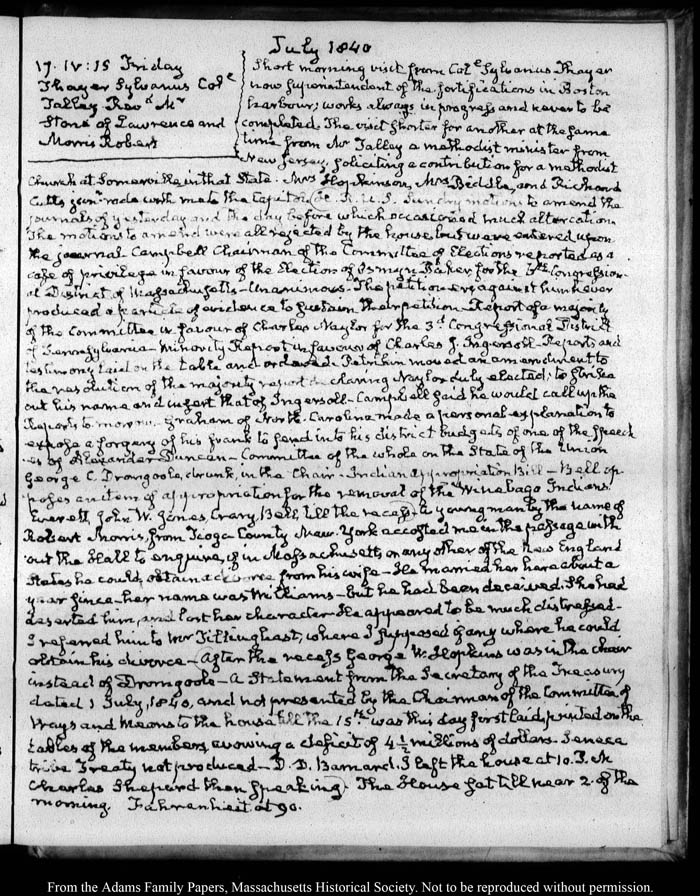 July 1840
17. IV:15 Friday
Thayer Sylvanus Col.e
Talley Rev.d Mr
Stone of Lawrence and
Morris Robert
Short morning visit from Col.e Sylvanus Thayer
now superintendent of the fortifications in Boston
harbour; works always in progress and never to be
completed. The visit shorter for another at the same
time from Mr Talley a methodist minister from
New Jersey, soliciting a contribution for a methodist
Church at Somerville in that State. Mrs Hopkinson, Mrs Biddle, and Richard
Cutts jun.r rode with me to the Capitol. H. R. U.S. Sundry motions to amend the
journals of yesterday and the day before which occasioned much altercation
The motions to amend were all rejected by the house but were entered upon
the journal. Campbell Chairman of the Committee of Elections reported as a
case of privilege in favour of the Election of Osmyn Baker for the Congression-
al District of Massachusetts – Unanimous. The petitioners against him never
produced a particle of evidence to sustain their petition – Report of a majority
of the Committee in favour of Charles Naylor for the 3d Congressional District
of Pennsylvania – Minority Report in favour of Charles J. Ingersoll – Reports and
testimony laid on the table and ordered. Petrikin moved an amendment to
the resolution of the majority report declaring Naylor duly elected; to strike
out his name and insert that of Ingersoll – Campbell said he would call up the
Reports to morrow. Graham of North Carolina made a personal explanation to
expose a forgery of his frank to send into his district budgets of one of the speech
es of Alexander Duncan – Committee of the whole on the State of the Union
George C. Dromgoole, drunk, in the Chair – Indian appropriation Bill – Bell op-
poses an item of appropriation for the removal of the Winebago Indians.
Everett, John W. Jones, Crary, Bell, till the recess. A young man by the name of
Robert Morris, from Tioga County New York accosted me in the passage with
out the Hall to enquire, if in Massachusetts or any other of the New England
States he could obtain a divorce from his wife – He married her here about a
year since – her name was Williams – but he had been deceived. She had
deserted him, and lost her character. He appeared to be much distressed –
I referred him to Mr Tillinghast, where I supposed if any where he could
obtain his divorce – After the recess George W. Hopkins was in the chair
instead of Dromgoole – A Statement from the Secretary of the Treasury
dated 1 July, 1840, and not presented by the Chairman of the Committee of
Ways and Means to the house till the 15th was this day first laid, printed on the
tables of the members, avowing a deficit of 4½ millions of dollars. Seneca
tribe Treaty not produced – D. D. Barnard. I left the house at 10. P. M
Charles Sheperd then speaking. The House sat till near 2. of the
morning. Fahrenheit at 90.
From the Adams Family Papers, Massachusetts Historical Society. Not to be reproduced without permission.